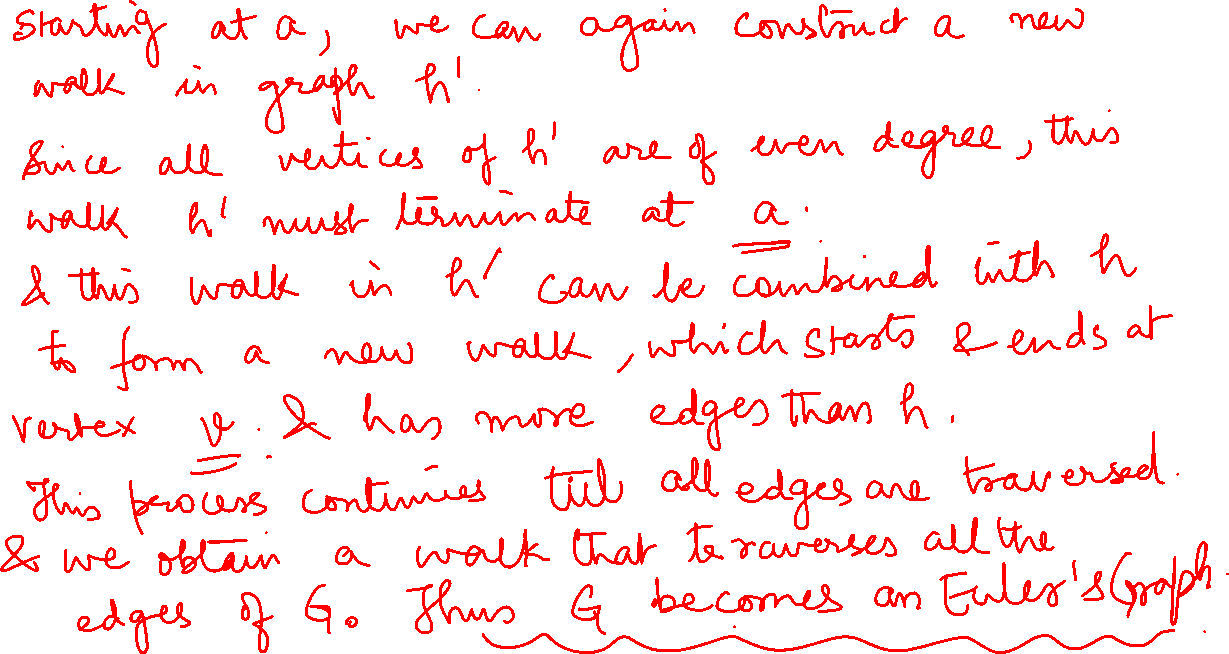 Starting at a, we can again construct a new
walk in graph h'.
Since all vertices of h' are of even degree, this
walk h' must terminate at a.
& this walk in h' can be combined with h
to form a new walk, which starts & ends at
vertex v. & has more edges than h.
This process continues till all edges are traversed.
& we obtain a walk that traverses all the
edges of G. Thus G becomes an Euler's Graph.